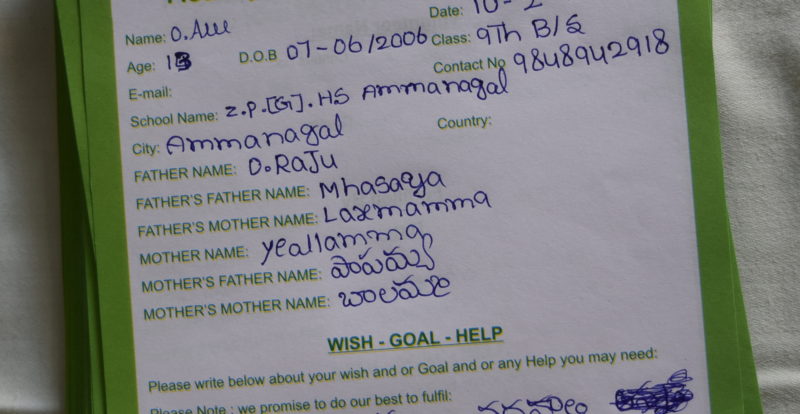 Date: 10-2
Name: O.
Age: 13 D.O.B 07-06/2006 Class: 9Th B/S
E-mail: Contact No 9848942918
School Name: Z.P.[G].HS Ammanagal
City: Ammanagal Country:
FATHER NAME: O.RaJu
FATHER'S FATHER NAME: Mhasaya
FATHER'S MOTHER NAME: Laxmamma
MOTHER NAME: Yeallamma
MOTHER'S FATHER NAME: పాపయ్య
MOTHER'S MOTHER NAME: బాలమ్మ
WISH - GOAL - HELP
Please write below about your wish and or Goal and or any Help you may need:
Please Note : we promise to do our best to fulfil: